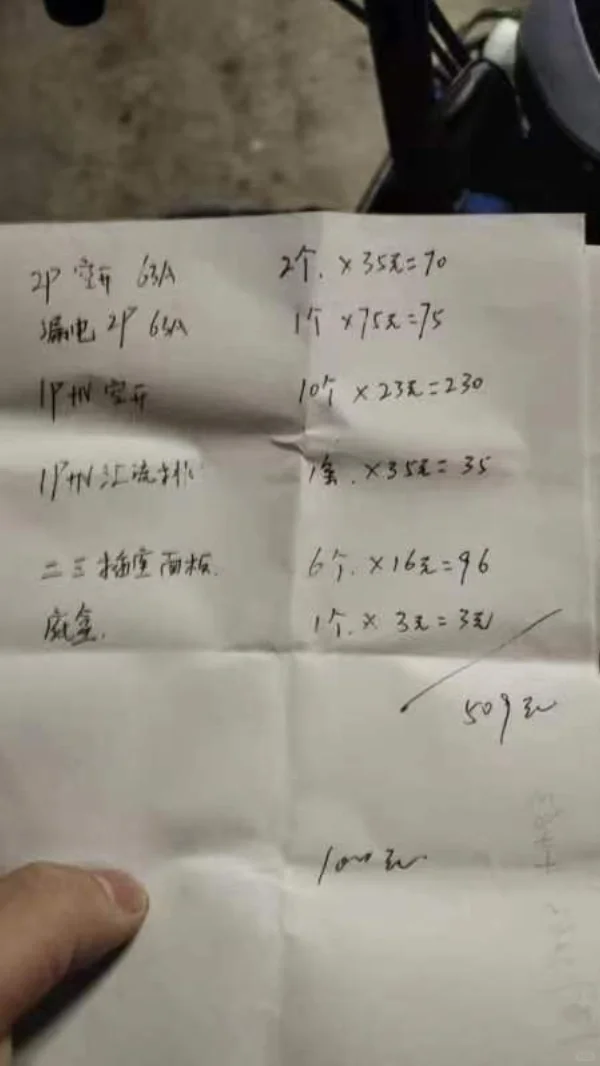 2P 空开 63A 2个. ×35元=70
漏电 2P 63A 1个 ×75元=75
1P+N 空开 10个 ×23元=230
1P+N 汇流排 1条. ×35元=35
二三插座面板. 6个. ×16元=96
底盒. 1个. × 3元=3元
509元
1000元